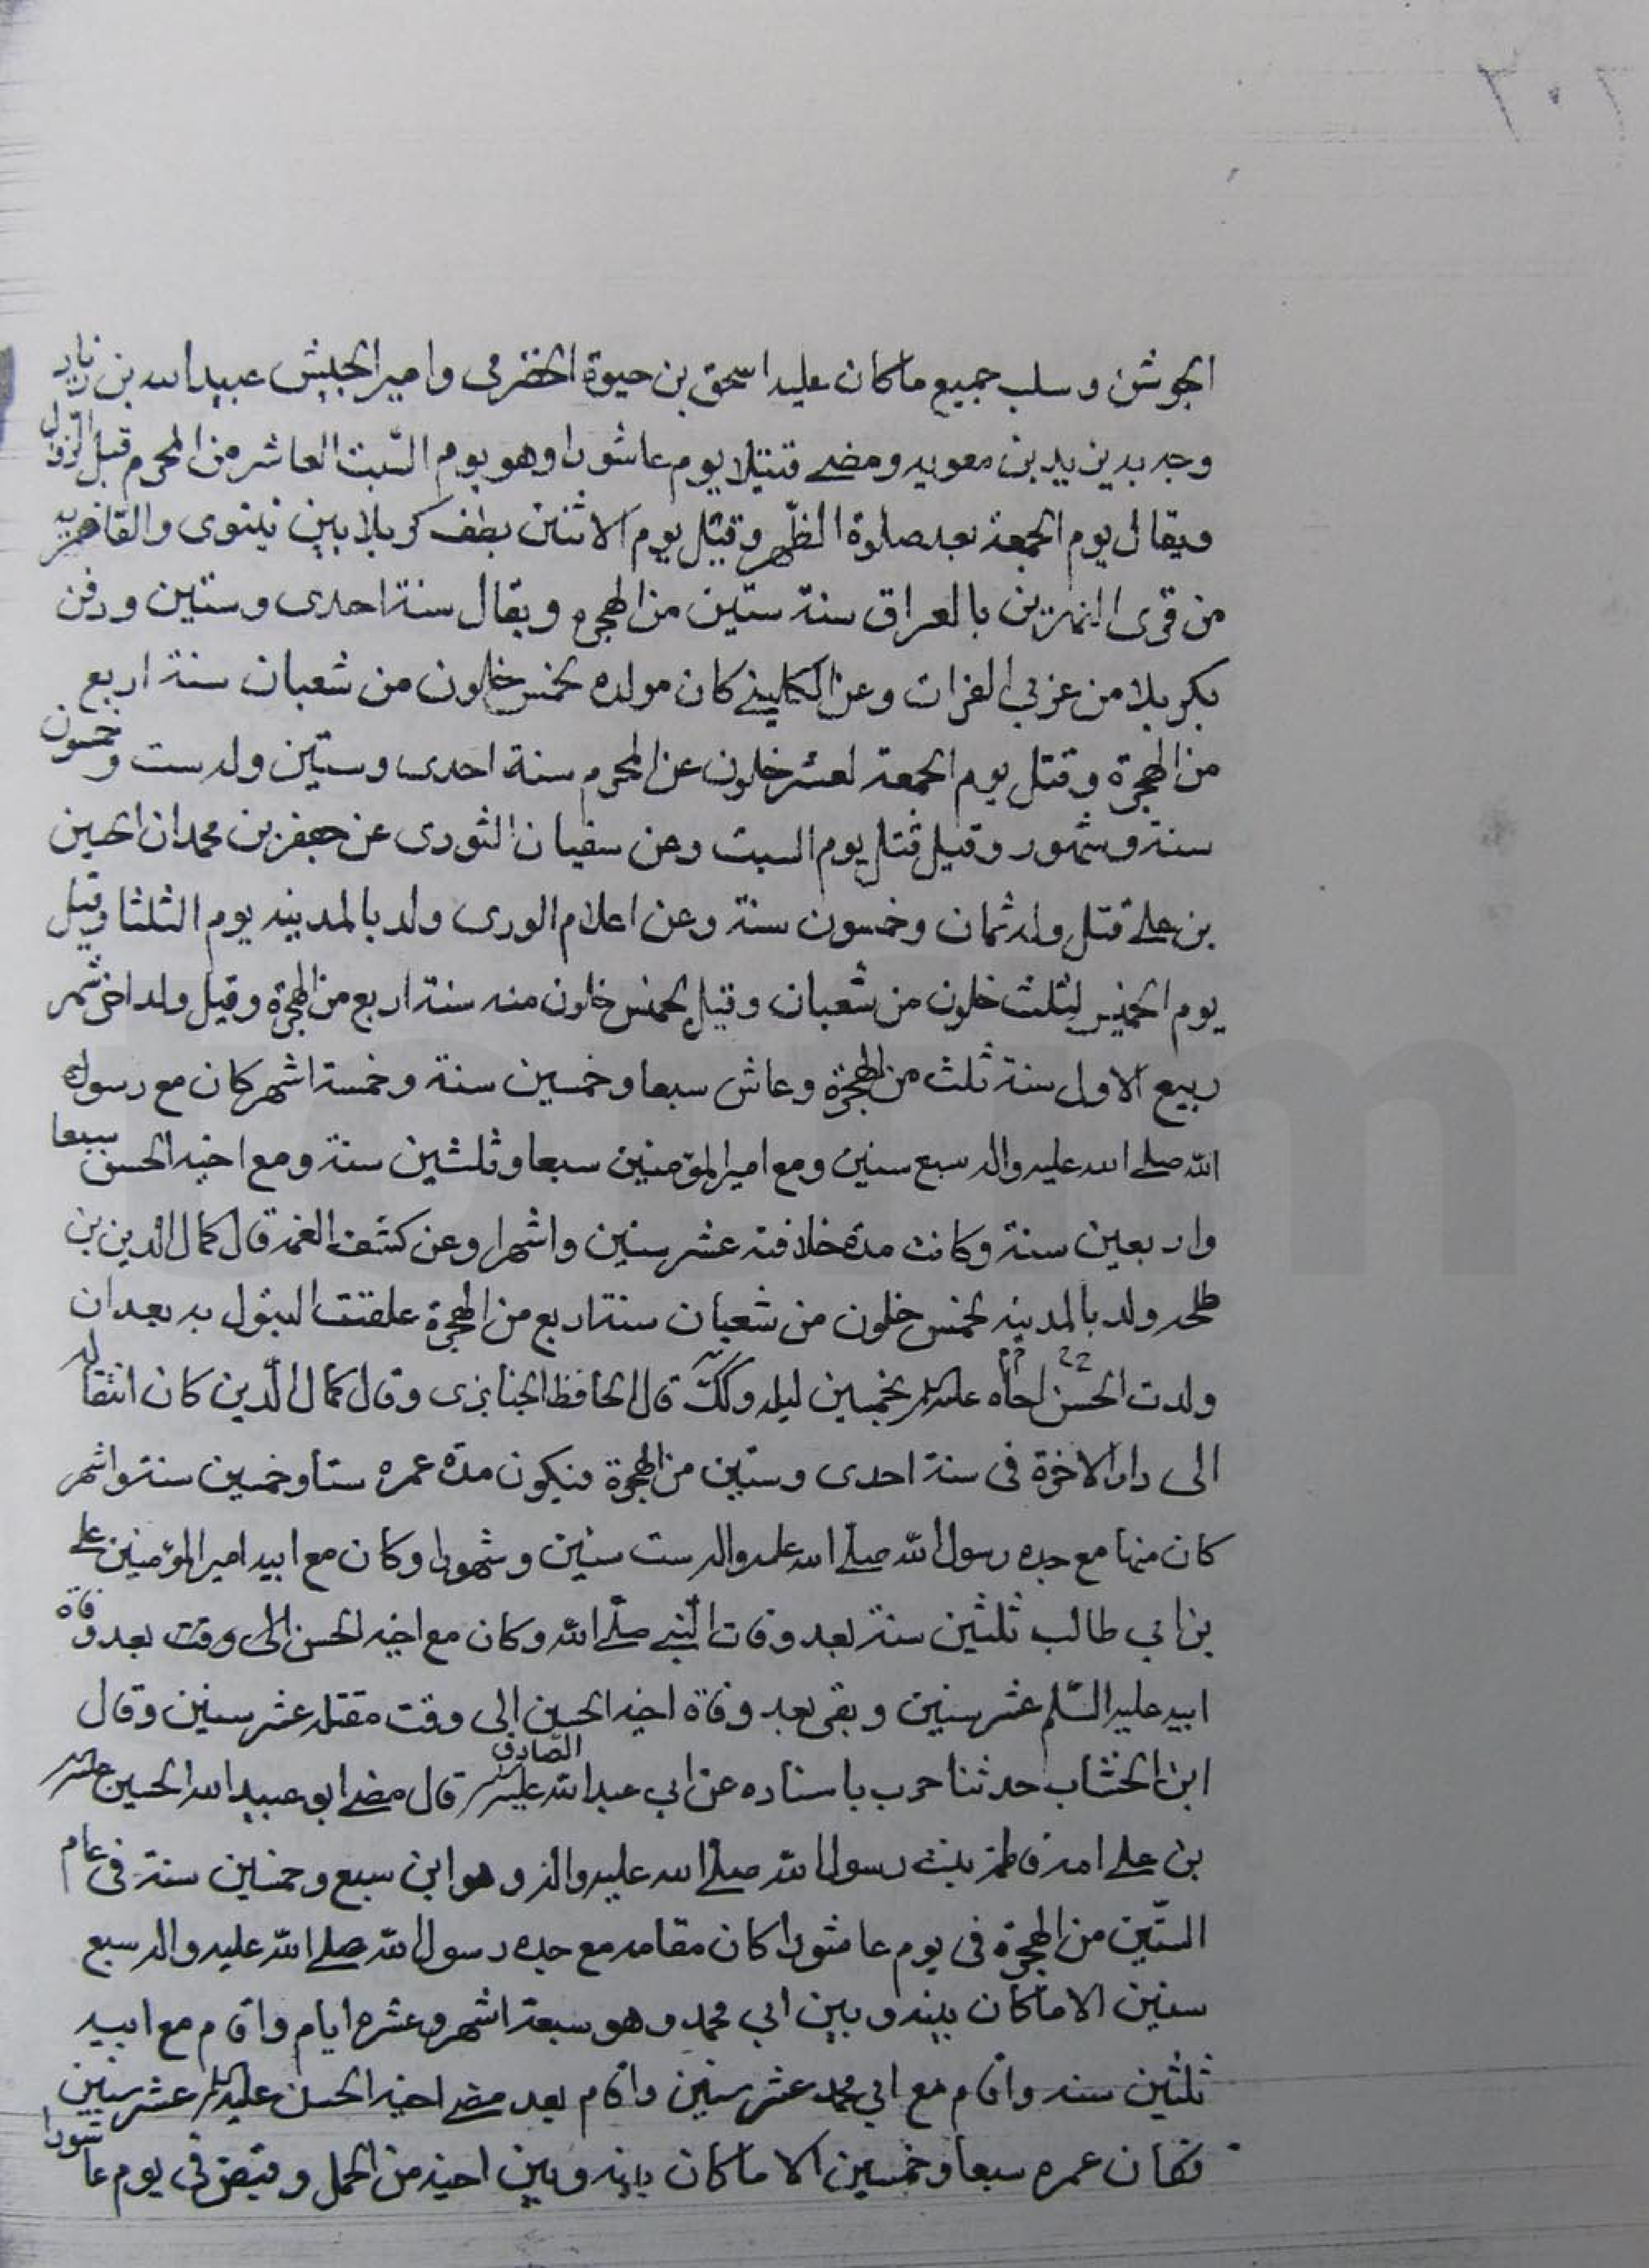 ٣٠٢
الجوشن وسلب جميع ماكان عليه اسحق بن حيوة الخضرمى وامير الجيش عبيد الله بن زياد
وجه به يزيد بن معويه ومضے قتيلا يوم عاشورا وهو يوم السّبت العاشر من المحرم قبل الزوال
ويقال يوم الجمعة بعد صلوة الظّهر وقيل يوم الاثنين بطف كربلا بين نينوى والغاضريه
من قرى النهرين بالعراق سنة ستين من الهجرة ويقال سنة احدى وستين ودفن
بكربلا من غربي الفرات وعن الكلينے كان مولده لخمس خلون من شعبان سنة اربع
من الهجرة وقتل يوم الجمعة لعشر خلون عن المحرم سنة احدى وستين وله ست وخمسون
سنة وشهور وقيل قتل يوم السبت وعن سفيان الثورى عن جعفر بن محمد ان الحسين
بن علے قتل وله ثمان وخمسون سنة وعن اعلام الورى ولد بالمدينه يوم الثلثا وقيل
يوم الخميس لثلث خلون من شعبان وقيل لخمس خلون منه سنة اربع من الهجرة وقيل ولد اخر شهر
ربيع الاول سنة ثلث من الهجرة وعاش سبعا وخمسين سنة وخمسة اشهر كان مع رسول
الله صلے الله عليه واله سبع سنين ومع امير المؤمنين سبعا وثلثين سنة ومع اخيه الحسن سبعا
واربعين سنة وكانت مدة خلافته عشر سنين واشهرا وعن كشف الغمه قال كمال الدين بن
طلحه ولد بالمدينه لخمس خلون من شعبان سنة اربع من الهجرة علقت البتول به بعد ان
ولدت الحسن اخاه عليه السلم بخمسين ليله وكك قال الحافظ الجنابزى وقال كمال الدّين كان انتقاله
الى دار الاخرة فى سنة احدى وستين من الهجرة فيكون مدة عمره ستا وخمسين سنة واشهر
كان منها مع جده رسول الله صلّے الله عليه واله ست سنين وشهورا وكان مع ابيه امير المؤمنين علے
بن ابي طالب ثلثين سنة بعد وفات النّبے صلّے الله وكان مع اخيه الحسن الى وقت بعد وفاة
ابيه عليه السّلم عشر سنين وبقى بعد وفاة اخيه الحسين الى وقت مقتله عشر سنين وقال
ابن الخشاب حدثنا حرب باسناده عن ابي عبد الله الصّادق عليه السلم قال مضے ابو عبيد الله الحسين
بن علے امه فاطمة بنت رسول الله صلّے الله عليه واله وهو ابن سبع وخمسين سنة فى عام
الستّين من الهجرة فى يوم عاشورا كان مقامه مع جده رسول الله صلے الله عليه واله سبع
سنين الا ماكان بينه وبين ابي محمد وهو سبعة اشهر وعشرة ايام واقام مع ابيه
ثلثين سنه واقام مع ابي محمد عشر سنين واقام بعد مضے اخيه الحسن عليه السلم عشر سنين
فكان عمره سبعا وخمسين الا ماكان بينه وبين اخيه من الحمل وقبض فى يوم عاشورا